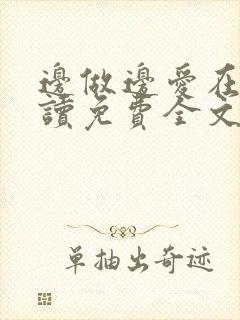 邊做邊愛在
讀免費全文
單抽出奇迹